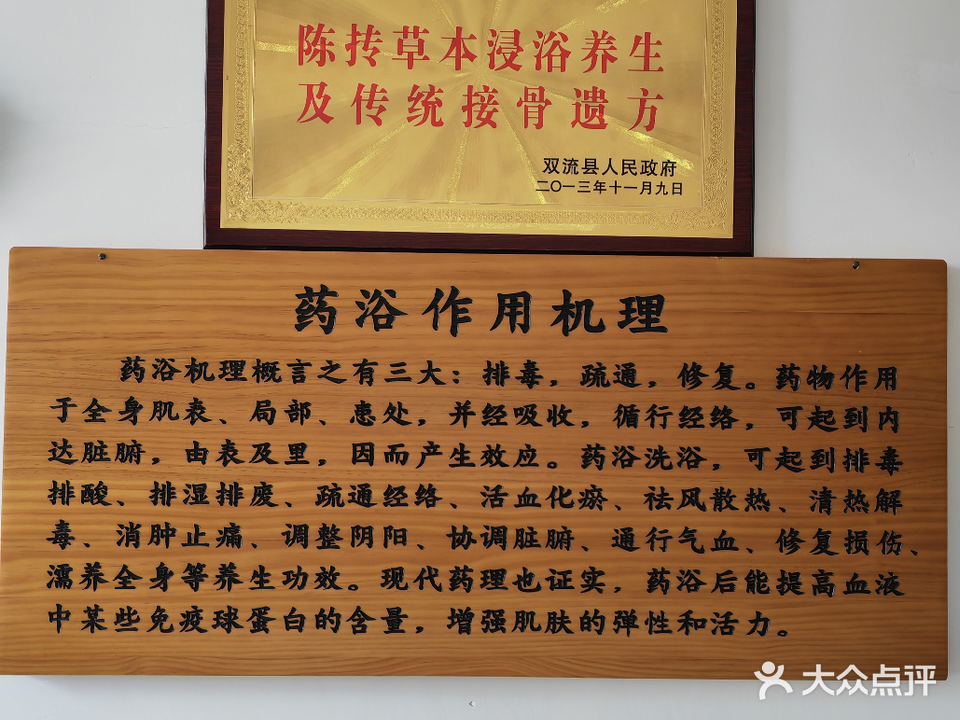 陈抟草本浸浴养生
及传统接骨遗方
双流县人民政府
二〇一三年十一月九日
药浴作用机理
药浴机理概言之有三大：排毒，疏通，修复。药物作用
于全身肌表、局部、患处，并经吸收，循行经络，可起到内
达脏腑，由表及里，因而产生效应。药浴洗浴，可起到排毒
排酸、排湿排废、疏通经络、活血化瘀、祛风散热、清热解
毒、消肿止痛、调整阴阳、协调脏腑、通行气血、修复损伤、
濡养全身等养生功效。现代药理也证实，药浴后能提高血液
中某些免疫球蛋白的含量，增强肌肤的弹性和活力。
大众点评